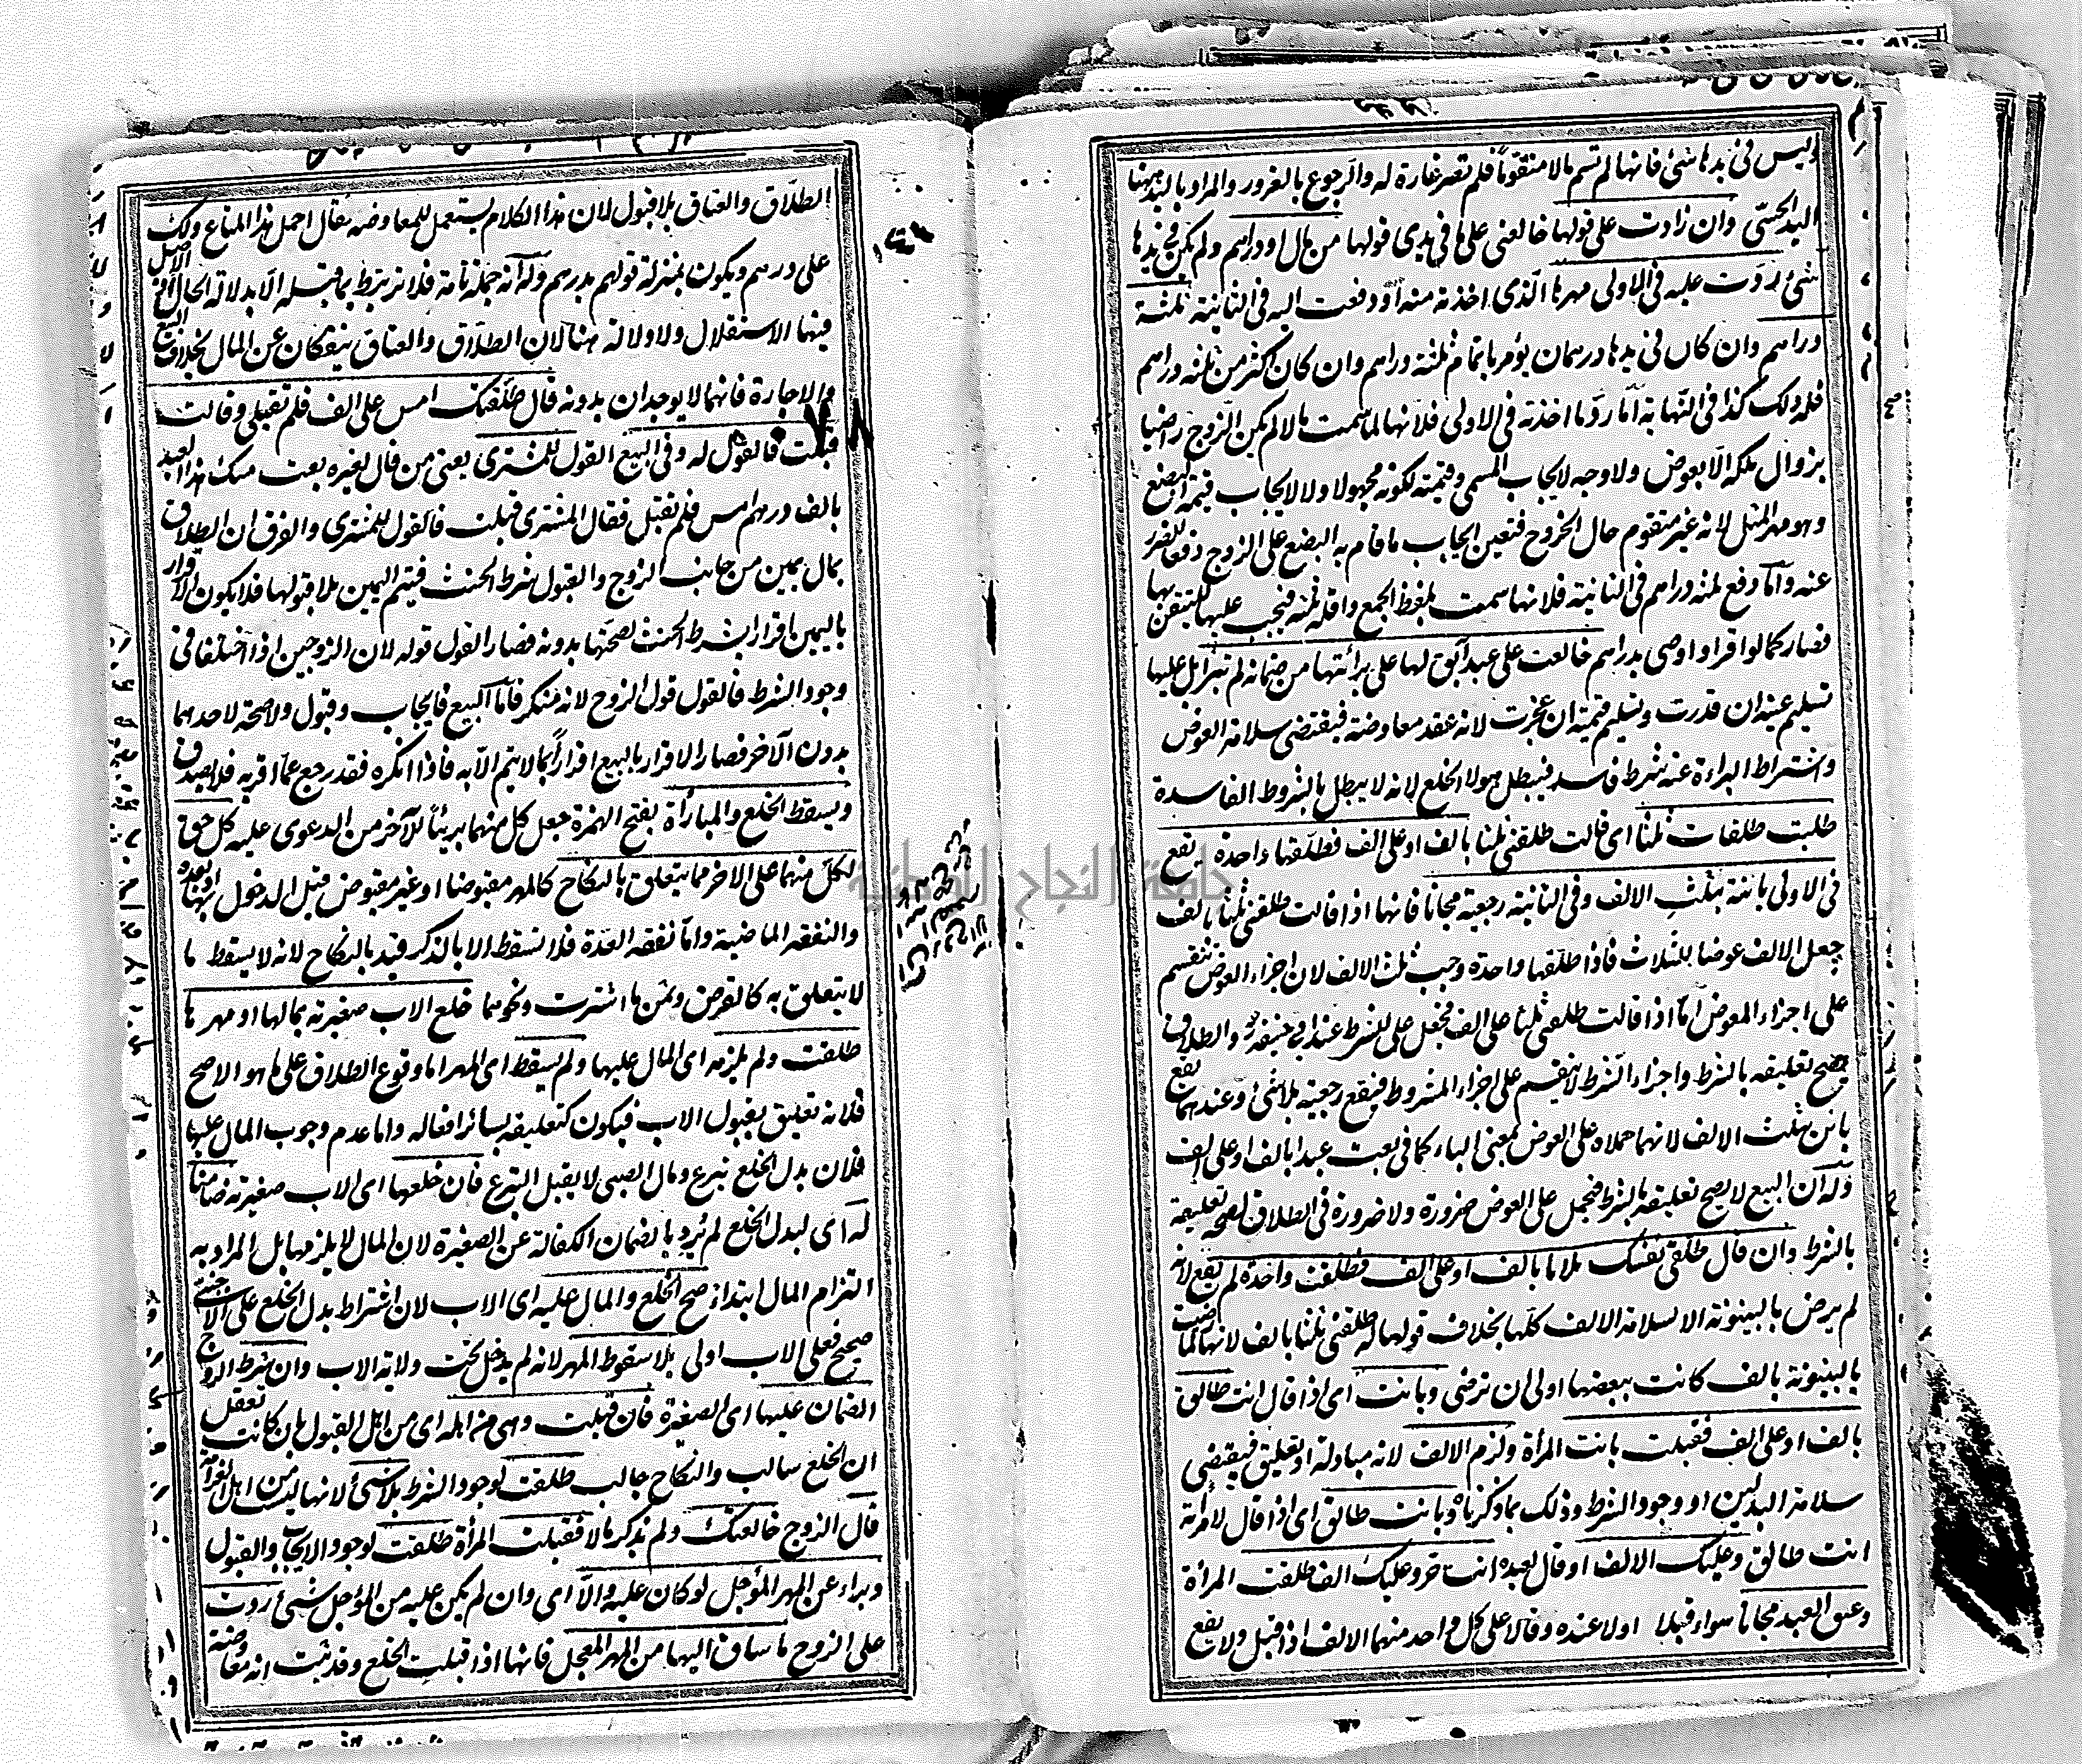 وليس في يدها شئ فانها لم تسم مالا متقوماً فلم تصر غارة له والرجوع بالغرور والمراد باليد ههنا
اليد الحسّى وان زادت على قولها خالعنى على ما في يدى قولها من مال او دراهم ولم يكن في يدها
شئ ردّت عليه في الاولى مهرها الّذى اخذته منه او دفعت اليه في الثانية ثلثة
دراهم وان كان في يدها درهمان يؤمر باتمام ثلثة دراهم وان كان اكثر من ثلثة دراهم
فله ذلك كذا في النّهاية امّا ردّ ما اخذته في الاولى فلانها لما سمت مالا لم يكن الزوج راضيا
بزوال ملكه الّا بعوض ولا وجه لايجاب المسمى وقيمته لكونه مجهولا ولا لايجاب قيمة البضع
وهو مهر المثل لانه غير متقوم حال الخروج فتعين ايجاب ما قام به البضع على الزوج دفعا للضرر
عنه وامّا دفع ثلثة دراهم في الثانية فلانها سمت بلفظ الجمع واقله ثلثة فيجب عليها للتيقن بها
فصار كما لو اقر او اوصى بدراهم خالعت على عبد آبق لها على برائتها من ضمانه لم تبرأ بل عليها
تسليم عينه ان قدرت وتسليم قيمته ان عجزت لانه عقد معاوضة فيقتضى سلامة العوض
واشتراط البراءة عنه شرط فاسد فيبطل هو لا الخلع لانه لا يبطل بالشروط الفاسدة
طلبت طلقات ثلثا اى قالت طلقنى ثلثا بالف او على الف فطلّقها واحدة يقع
في الاولى بائنة بثلث الالف وفى الثانية رجعية مجانا فانها اذا قالت طلقنى ثلثا بالف
جعل الالف عوضا للثلاث فاذا طلّقها واحدة وجب ثلث الالف لان اجزاء العوض تنقسم
على اجزاء المعوض امّا اذا قالت طلقنى ثلثا على الف فجعل على للشرط عند ابى حنيفة رح والطلاق
يصح تعليقه بالشرط واجزاء الشرط لا ينقسم على اجزاء المشروط فيقع رجعية بلا شئ وعندهما يقع
بائن بثلث الالف لانهما حملاه على العوض بمعنى الباء كما في بعت عبدا بالف او على الف
وله ان البيع لا يصح تعليقه بالشرط فيحمل على العوض ضرورة ولا ضرورة في الطلاق لصحة تعليقه
بالشرط وان قال طلقى نفسك ثلاثا بالف او على الف فطلقت واحدة لم يقع لانه
لم يرض بالبينونة الا بسلامة الالف كلّها بخلاف قولها له طلقنى ثلثا بالف لانها لما رضيت
بالبينونة بالف كانت ببعضها اولى ان ترضى وبانت اى اذا قال انت طالق
بالف او على الف فقبلت بانت المرأة ولزم الالف لانه مبادلة او تعليق فيقتضى
سلامة البدلين او وجود الشرط وذلك بما ذكرناه وبانت طالق اى اذا قال لامرأته
انت طالق وعليك الالف او قال لعبده انت حر وعليك الف طلقت المرأة
وعتق العبد مجانا سواء قبلا او لا عنده وقالا على كل واحد منهما الالف اذا قبل ولا يقع
الطلاق والعتاق بلا قبول لان هذا الكلام يستعمل للمعاوضة يقال احمل هذا المتاع ولك
على درهم ويكون بمنزلة قولهم بدرهم وله انه جملة تامة فلا ترتبط بما قبله الّا بدلالة الحال اذ الاصل
فيها الاستقلال ولا دلالة هنا لان الطلاق والعتاق ينفكان عن المال بخلاف البيع
والاجارة فانهما لا يوجدان بدونه قال طلقتك امس على الف فلم تقبلى وقالت
قبلت فالقول له وفى البيع القول للمشترى يعنى من قال لغيره بعت منك هذا العبد
بالف درهم امس فلم تقبل فقال المشترى قبلت فالقول للمشترى والفرق ان الطلاق
بمال يمين من جانب الزوج والقبول شرط الحنث فيتم اليمين بلا قبولها فلا يكون الاقرار
باليمين اقرارا بشرط الحنث لصحتها بدونه فصار القول قوله لان الزوجين اذا اختلفا في
وجود الشرط فالقول قول الزوج لانه منكر فامّا البيع فايجاب وقبول ولا صحة لاحدهما
بدون الآخر فصار الاقرار بالبيع اقراراً بما لا يتم الّا به فاذا انكره فقد رجع عمّا اقر به فلا يصدق
ويسقط الخلع والمبارأة بفتح الهمزة جعل كل منهما بريئاً للآخر من الدعوى عليه كل حق
لكل منهما على الاخر مما يتعلق بالنكاح كالمهر مقبوضا او غير مقبوض قبل الدخول بها او بعده
والنفقة الماضية وامّا نفقة العدة فلا تسقط الا بالذكر قيد بالنكاح لانه لا يسقط ما
لا يتعلق به كالقرض وثمن ما اشترت ونحوهما خلع الاب صغيرته بمالها او مهرها
طلقت ولم يلزمه اى المال عليها ولم يسقط اى المهر اما وقوع الطلاق على ما هو الاصح
فلانه تعليق بقبول الاب فيكون كتعليقه بسائر افعاله واما عدم وجوب المال عليها
فلان بدل الخلع تبرع ومال الصبى لا يقبل التبرع فان خلعها اى الاب صغيرته ضامنا
له اى لبدل الخلع لم يُرِد بالضمان الكفالة عن الصغيرة لان المال لا يلزمها بل المراد به
التزام المال ابتداء صح الخلع والمال عليه اى الاب لان اشتراط بدل الخلع على الاجنبى
صحيح فعلى الاب اولى بلا سقوط المهر لانه لم يدخل تحت ولاية الاب وان شرط الزوج
الضمان عليها اى الصغيرة فان قبلت وهى من اهله اى من اهل القبول بان كانت تعقل
ان الخلع سالب والنكاح جالب طلقت لوجود الشرط بلا شئ لانها ليست من اهل الغرامة
قال الزوج خالعتك ولم يذكر مالا فقبلت المرأة طلقت لوجود الايجاب والقبول
وبرا عن المهر المؤجل لو كان عليه والّا اى وان لم يكن عليه من المؤجل شئ ردت
على الزوج ما ساق اليها من المهر المعجل فانها اذا قبلت الخلع وقد ثبت انه معاوضة
جامعة النجاح الوطنية